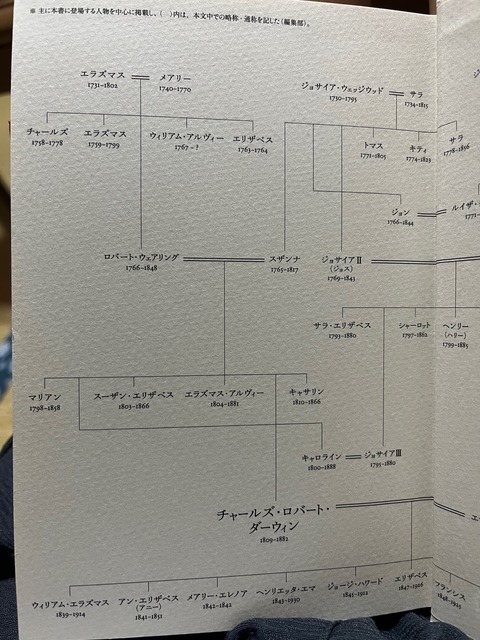 ※ 主に本書に登場する人物を中心に掲載し、( )内は、本文中での略称・通称を記した(編集部)。
エラズマス
1731–1802
メアリー
1740–1770
ジョサイア・ウェッジウッド
1730–1795
サラ
1734–1815
チャールズ
1758–1778
エラズマス
1759–1799
ウィリアム・アルヴィー
1767–?
エリザベス
1763–1764
トマス
1771–1805
キティ
1774–1823
サラ
1778–1856
ジョン
1766–1844
ルイザ・
ロバート・ウェアリング
1766–1848
スザンナ
1765–1817
ジョサイアⅡ
(ジョス)
1769–1843
サラ・エリザベス
1793–1880
シャーロット
1797–1862
ヘンリー
(ハリー)
1799–1885
マリアン
1798–1858
スーザン・エリザベス
1803–1866
エラズマス・アルヴィー
1804–1881
キャサリン
1810–1866
キャロライン
1800–1888
ジョサイアⅢ
1795–1880
チャールズ・ロバート・
ダーウィン
1809–1882
エ
ウィリアム・エラズマス
1839–1914
アン・エリザベス
(アニー)
1841–1851
メアリー・エレノア
1842–1842
ヘンリエッタ・エマ
1843–1930
ジョージ・ハワード
1845–1912
エリザベス
1847–1926
フランシス
1848–1925